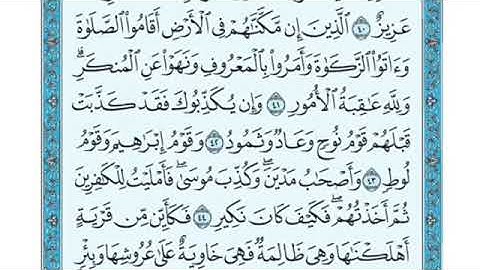 عَزِيزٌ ٤٠ ٱلَّذِينَ إِن مَّكَّنَّٰهُمْ فِى ٱلْأَرْضِ أَقَامُوا۟ ٱلصَّلَوٰةَ
وَءَاتَوُا۟ ٱلزَّكَوٰةَ وَأَمَرُوا۟ بِٱلْمَعْرُوفِ وَنَهَوْا۟ عَنِ ٱلْمُنكَرِ ۗ
وَلِلَّهِ عَٰقِبَةُ ٱلْأُمُورِ ٤١ وَإِن يُكَذِّبُوكَ فَقَدْ كَذَّبَتْ
قَبْلَهُمْ قَوْمُ نُوحٍ وَعَادٌ وَثَمُودُ ٤٢ وَقَوْمُ إِبْرَٰهِيمَ وَقَوْمُ
لُوطٍ ٤٣ وَأَصْحَٰبُ مَدْيَنَ ۖ وَكُذِّبَ مُوسَىٰ ۖ فَأَمْلَيْتُ لِلْكَٰفِرِينَ
ثُمَّ أَخَذْتُهُمْ ۖ فَكَيْفَ كَانَ نَكِيرِ ٤٤ فَكَأَيِّن مِّن قَرْيَةٍ
أَهْلَكْنَٰهَا وَهِىَ ظَالِمَةٌ فَهِىَ خَاوِيَةٌ عَلَىٰ عُرُوشِهَا وَبِئْرٍ